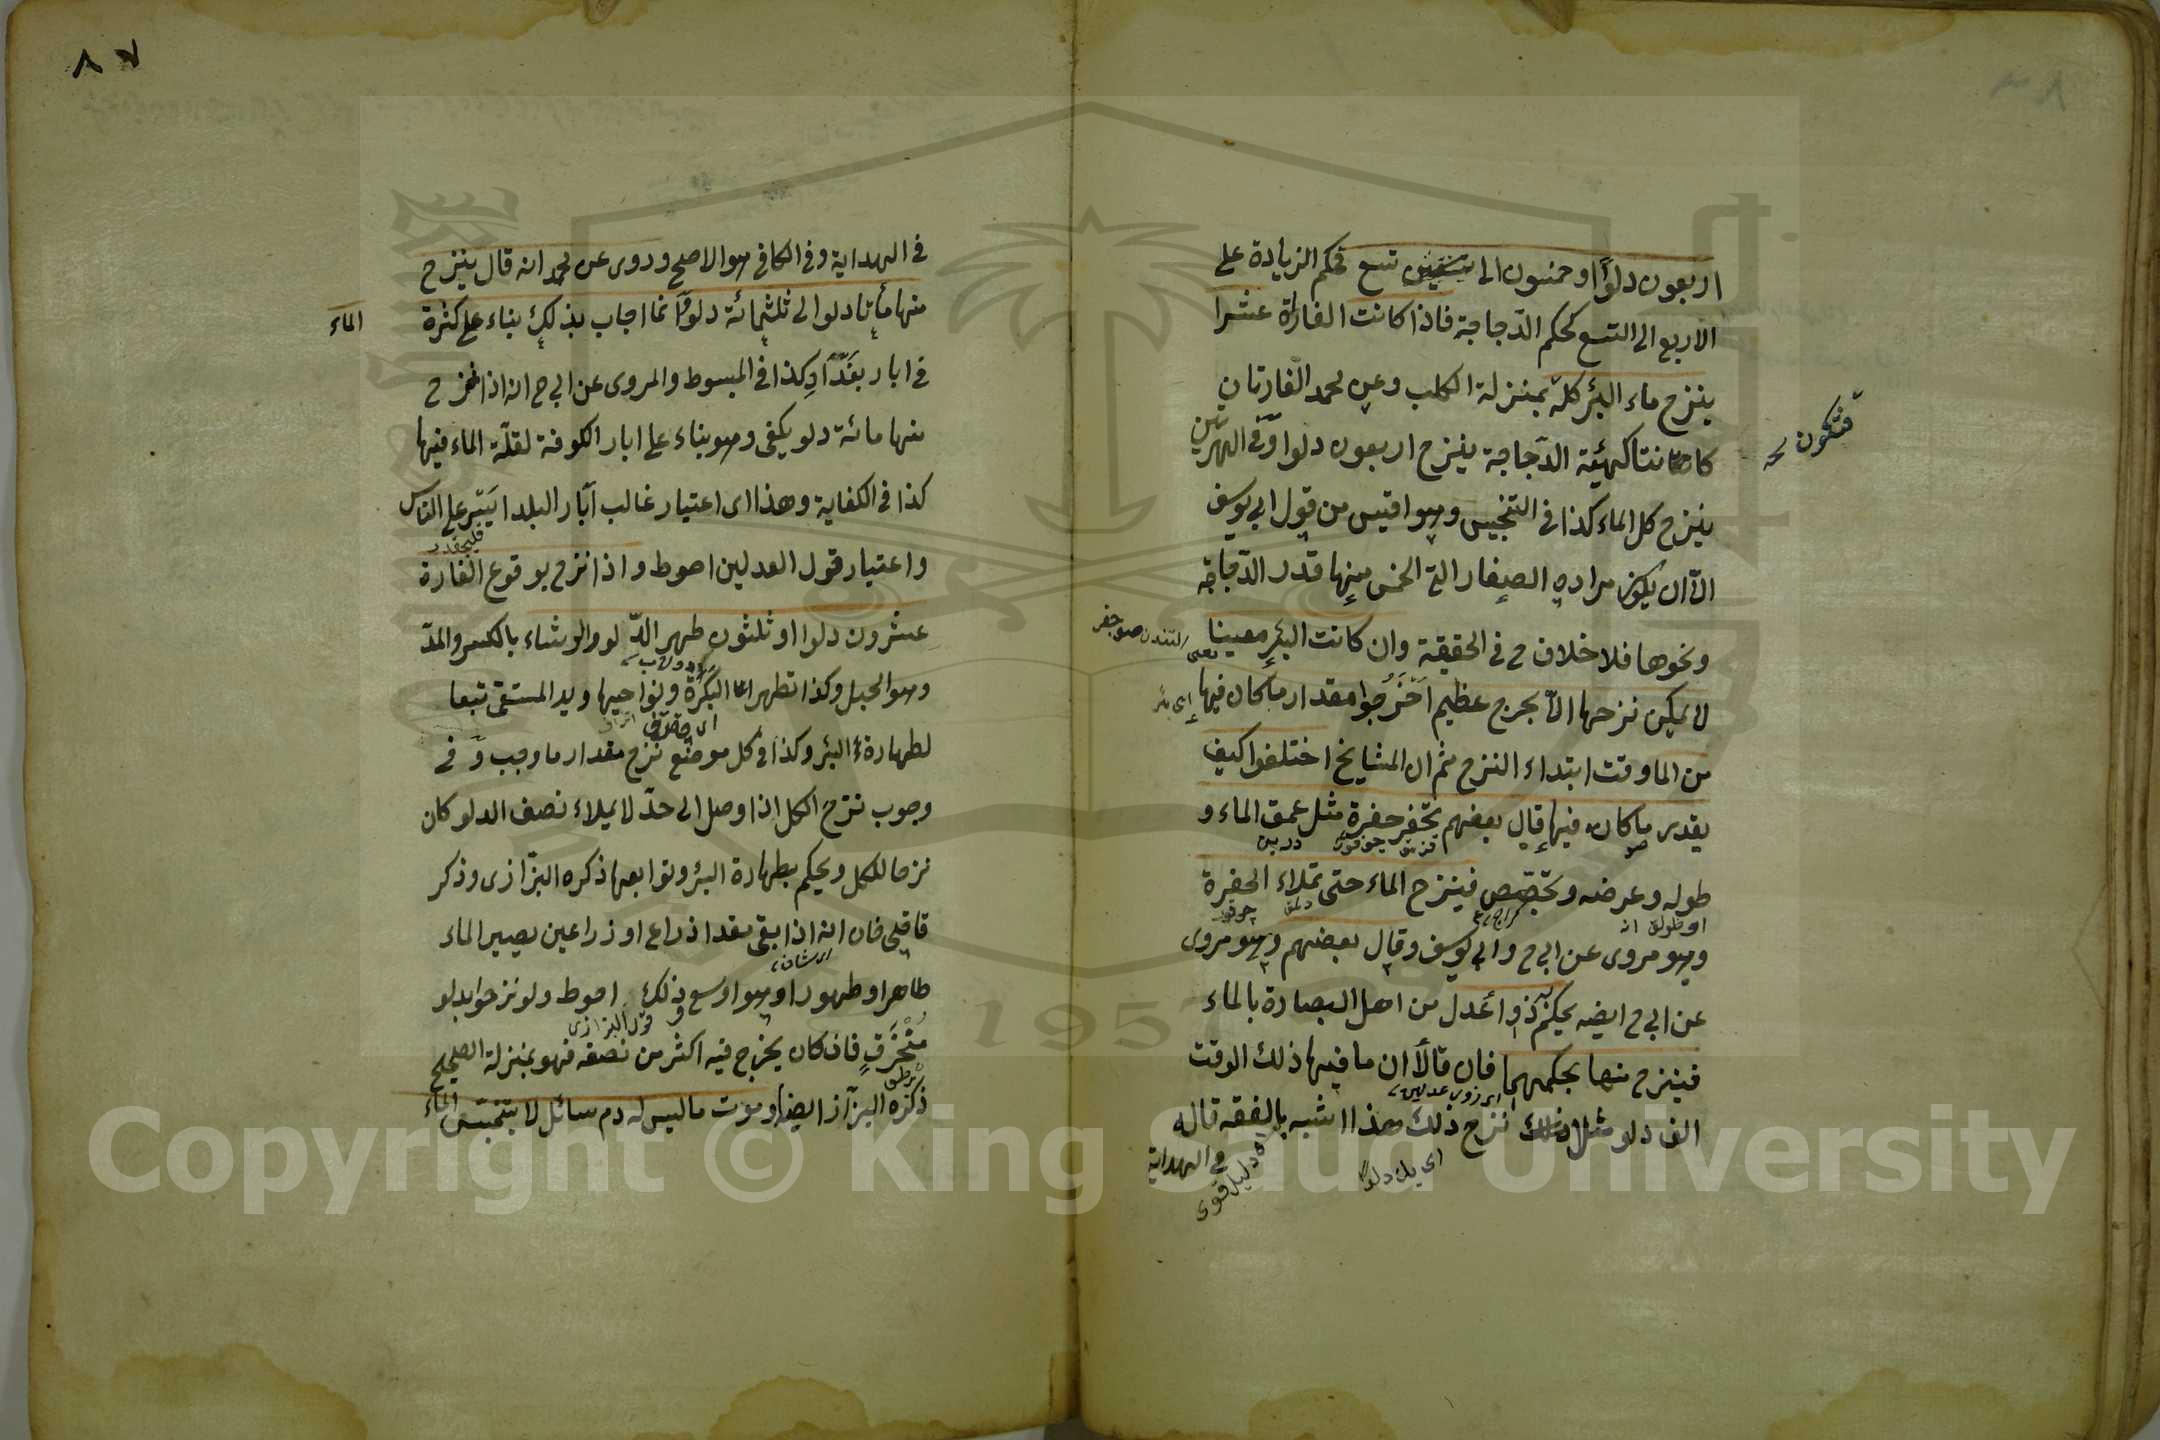 اربعون دلوًا او خمسون الى ستين تسع فحكم الزيادة على
الاربع الى التسع كحكم الدّجاجة فاذا كانت الفارة عشرا
ينزح ماء البئر كلّه بمنزلة الكلب وعن محمد الفارتان
كانتا كهيئة الدّجاجة ينزح اربعون دلوا وفى الهرتين
ينزح كل الماء كذا فى التجنيس وهو اقيس من قول ابى يوسف
الّا ان يكون مراده الصغار التى الخمس منها قدر الدّجاجة
ونحوها فلا خلاف ح فى الحقيقة وان كانت البئر معينا
لا يمكن نزحها الّا بحرج عظيم اخرجوا مقدار ما كان فيها
من الما وقت ابتداء النزح ثم ان المشايخ اختلفوا كيف
يقدر ما كان فيها قال بعضهم تحفر حفرة مثل عمق الماء و
طوله وعرضه وتجصّص فينزح الماء حتى تملاء الحفرة
وهو مروى عن ابى ح وابى يوسف وقال بعضهم وهو مروى
عن ابى ح ايضه يحكم ذوا عدل من اهل البصارة بالماء
فينزح منها بحكمهما فان قالا ان ما فيها ذلك الوقت
الف دلو مثلا نزح ذلك هذا اشبه بالفقه قاله
فى الهداية
دليل قوى
فتكون
٨٧
فى الهداية وفى الكافى هو الاصح وروى عن محمد انه قال ينزح
منها مأتا دلو الى ثلثمائة دلو انما اجاب بذلك بناء على كثرة
الماء
فى ابار بغداد كذا فى المبسوط والمروى عن ابى ح انه اذا نزح
منها مائة دلو يكفى وهو بناء على ابار الكوفة لقلّة الماء فيها
كذا فى الكفاية وهذا اى اعتبار غالب آبار البلد ايسر على الناس
واعتبار قول العدلين احوط واذا نزح بوقوع الفارة
عشرون دلوا او ثلثون طهر الدّلو والرشاء بالكسر والمدّ
وهو الحبل وكذا تطهر البكرة ونواحيها ويد المستقى تبعا
لطهارة البئر وكذا فى كل موضع نزح مقدار ما وجب وفى
وجوب نزح الكل اذا وصل الى حدّ لا يملاء نصف الدلو كان
نزحا للكل ويحكم بطهارة البئر وتوابعها ذكره البزّازى وذكر
قاضى خان انه اذا بقى مقدار ذراع او ذراعين يصير الماء
طاهرا وطهورا وهو اوسع وذلك احوط ولو نزحوا بدلو
وقول البزازى
مُنْخَرِقٍ فان كان يخرج فيه اكثر من نصفه فهو بمنزلة الصحيح
ذكره البزّازى ايضا وموت ما ليس له دم سائل لا ينجّس الماء
Copyright © King Saud University
1957